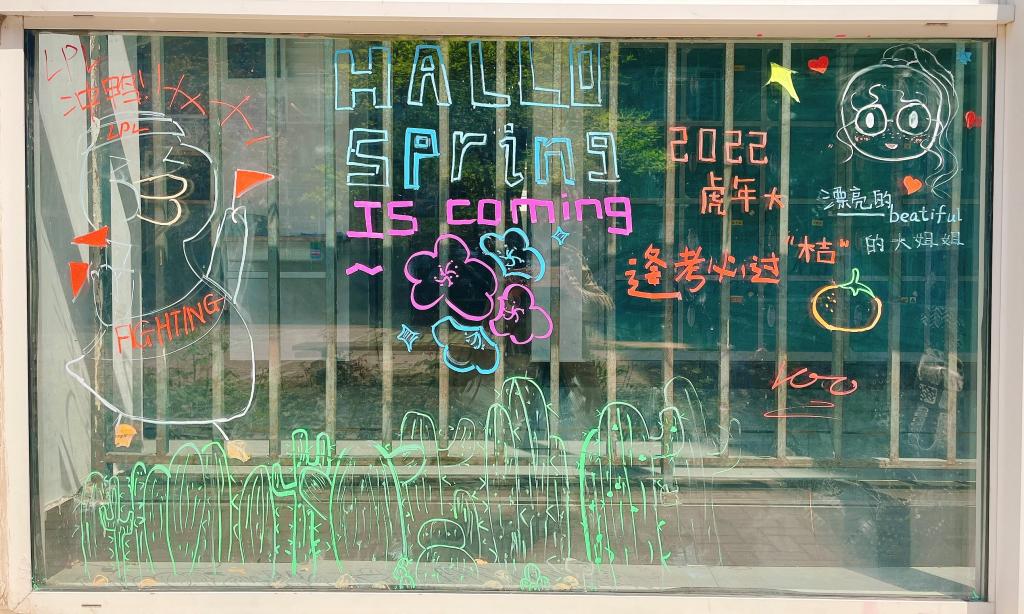 LPL
冲鸭!
LPL
FIGHTING
HALLO
Spring
Is coming
~
2022
虎年大
"桔"
逢考必过
100
漂亮的
beatiful
的大姐姐